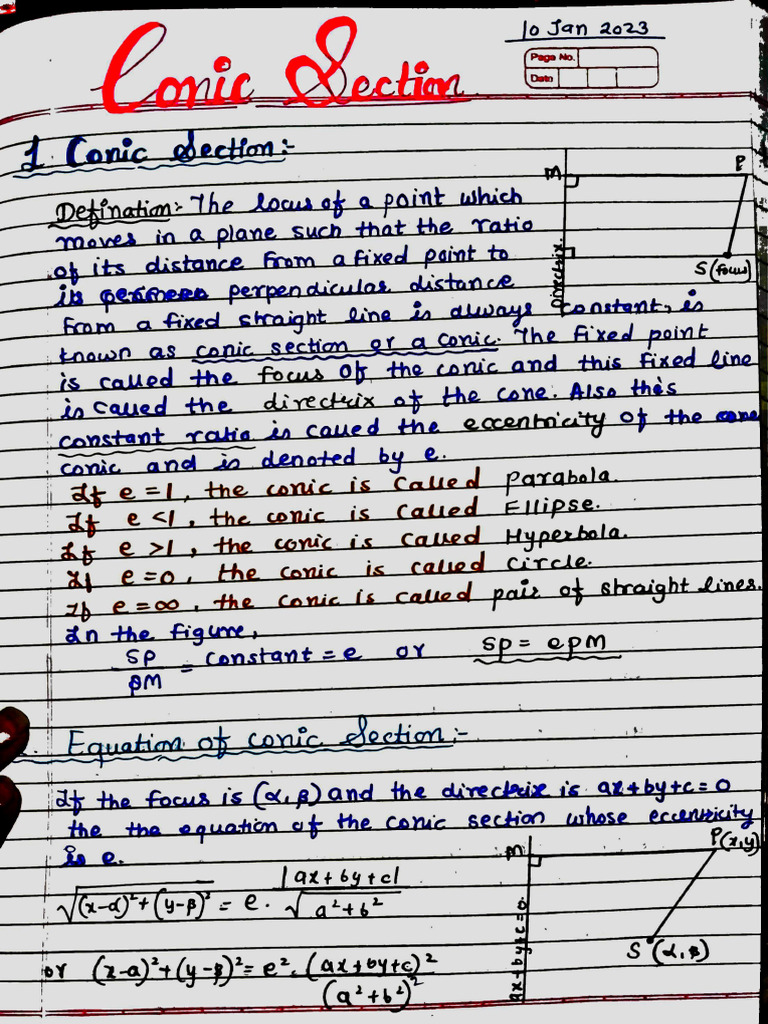 10 Jan 2023
Page No.
Date
Conic Section
1. Conic Section:-
M
P
S (focus)
Directrix
Defination:- The locus of a point which
moves in a plane such that the ratio
of its distance from a fixed point to
its perpendicular distance
from a fixed straight line is always constant, is
known as conic section or a conic. The fixed point
is called the focus of the conic and this fixed line
is called the directrix of the cone. Also this
constant ratio is called the eccentricity of the
conic and is denoted by e.
If e = 1, the conic is called parabola.
If e < 1, the conic is called Ellipse.
If e > 1, the conic is called Hyperbola.
If e = 0, the conic is called circle.
If e = ∞, the conic is called pair of straight lines.
In the figure,
SP/PM = constant = e or SP = ePM
Equation of conic section:-
If the focus is (α, β) and the directrix is ax+by+c=0
the the equation of the conic section whose eccentricity
is e.
M
P(x,y)
S (α, β)
ax+by+c=0
√(x-α)²+(y-β)² = e . |ax+by+c|/√a²+b²
or (x-α)²+(y-β)² = e². (ax+by+c)²/(a²+b²)²